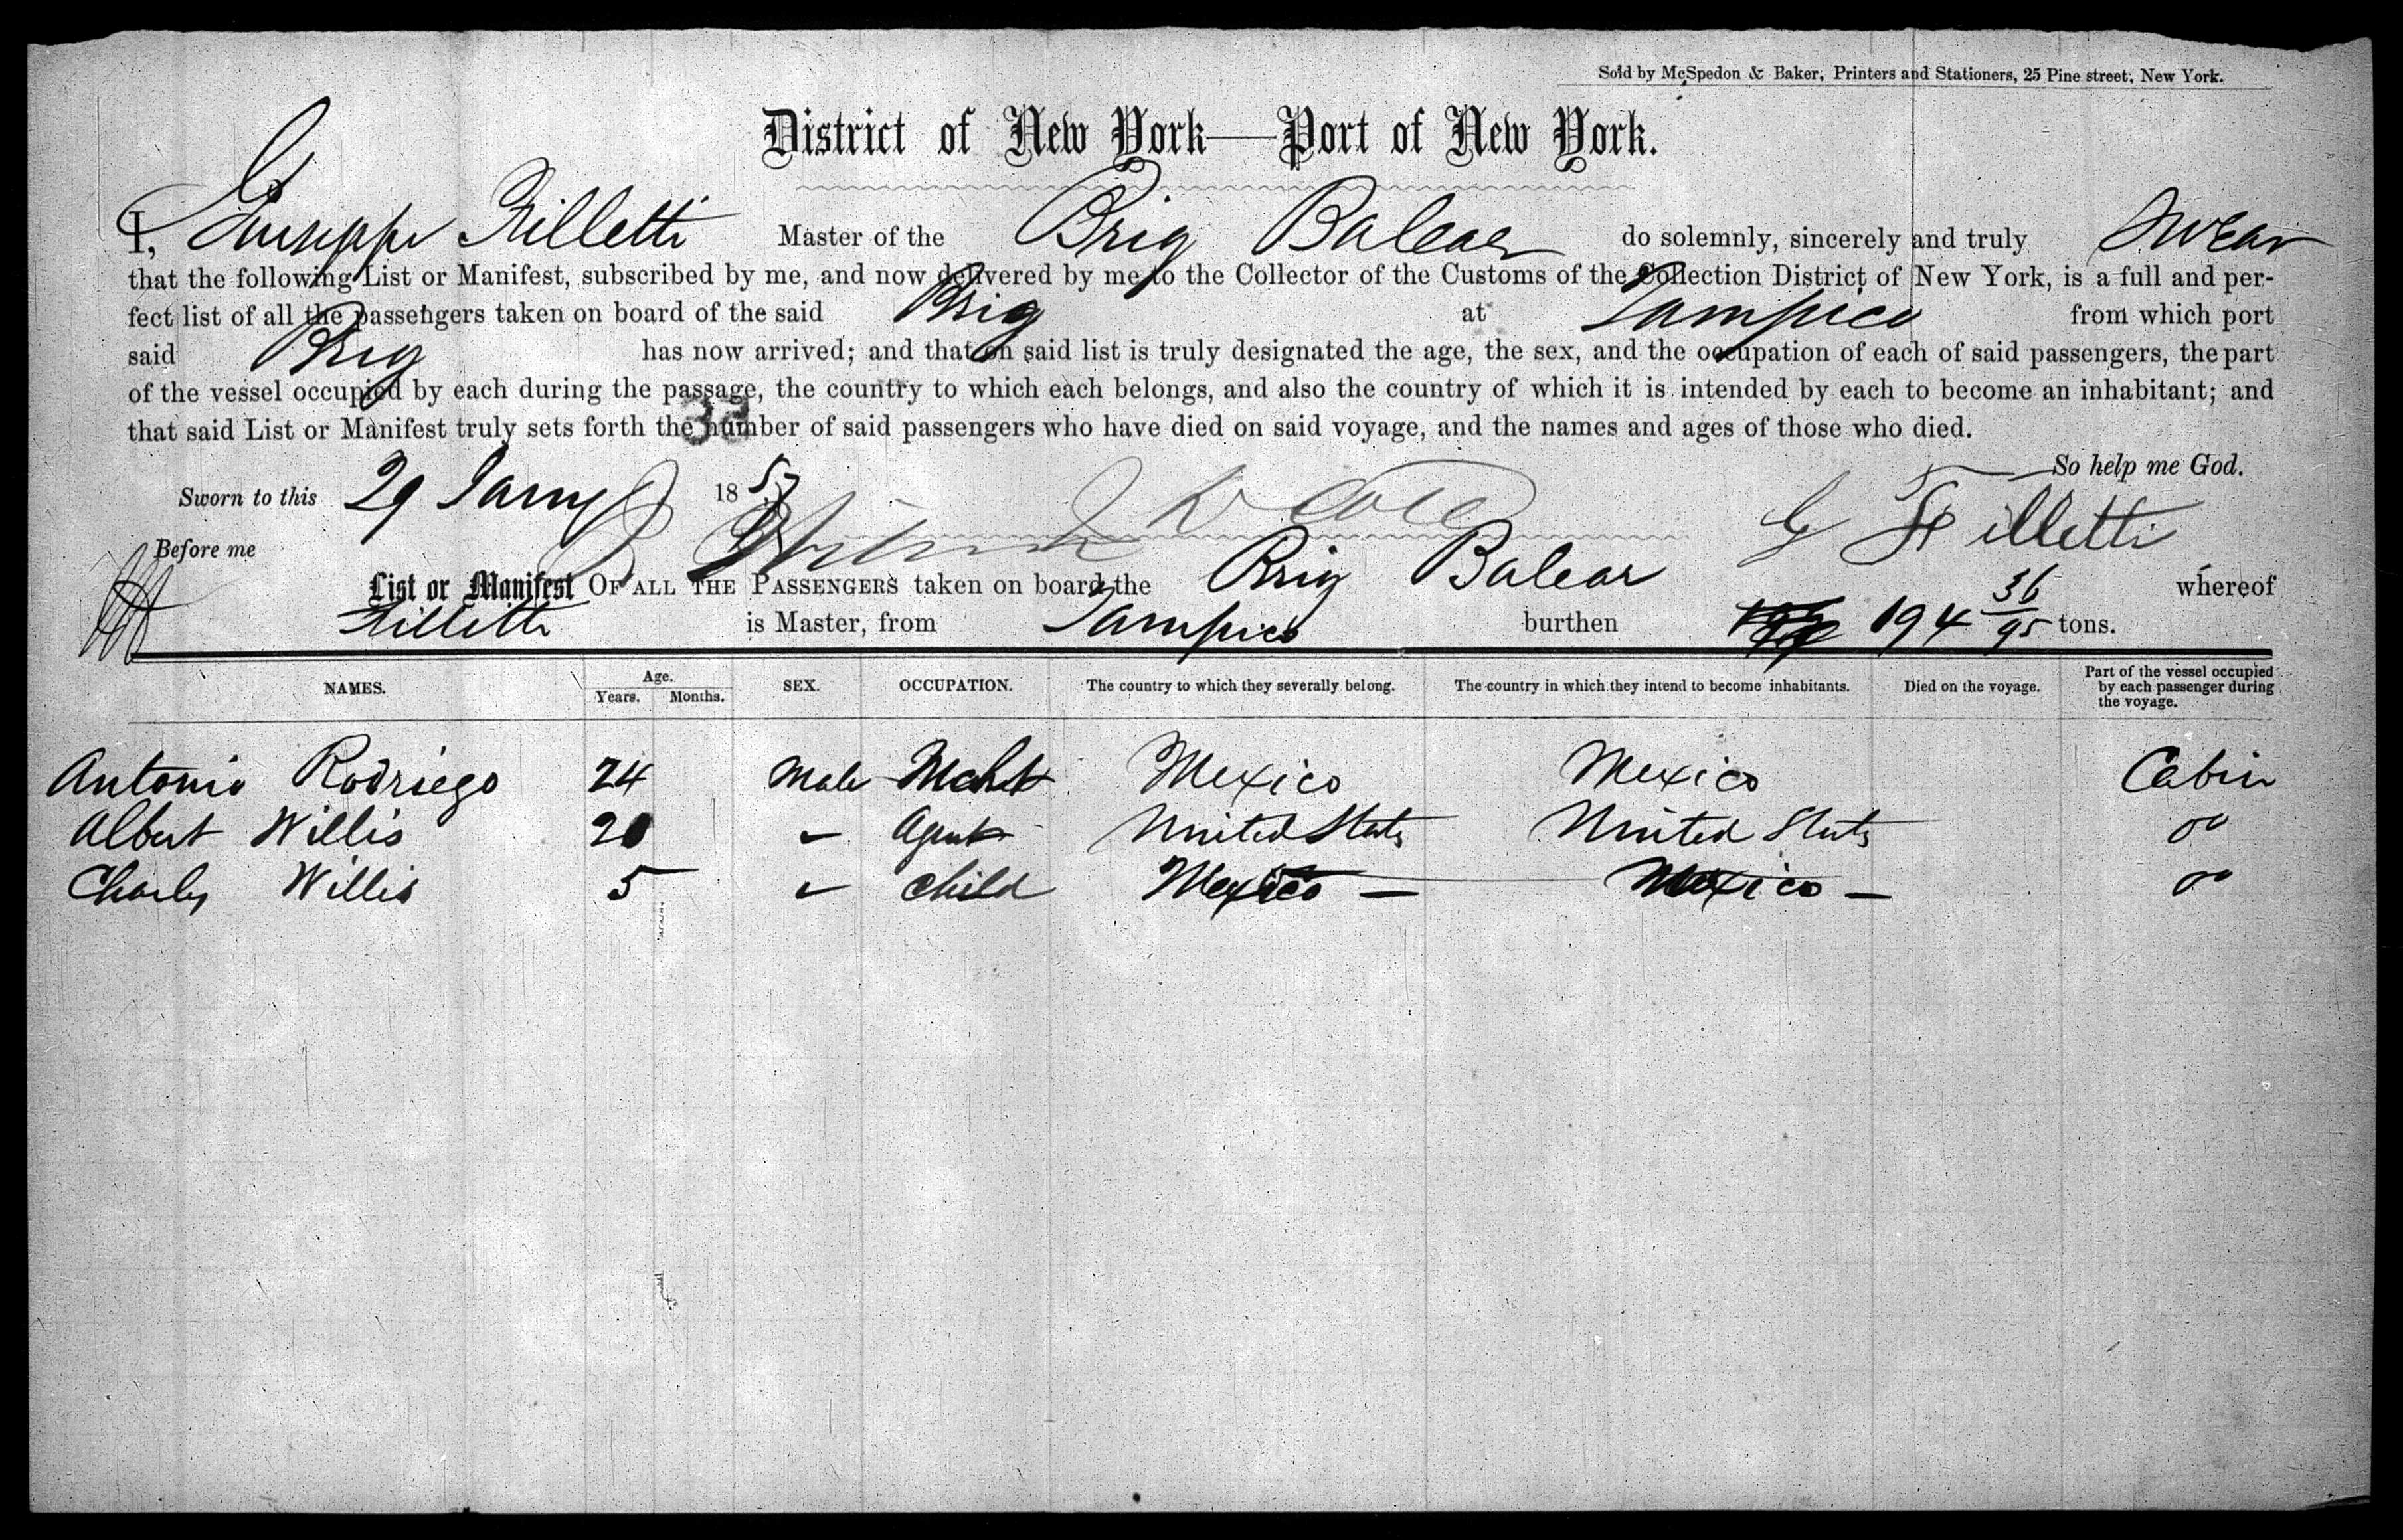 Sold by McSpedon & Baker, Printers and Stationers, 25 Pine street, New York.
District of New York—Port of New York.
I, Giuseppe Filletti Master of the Brig Balear do solemnly, sincerely and truly swear
that the following List or Manifest, subscribed by me, and now delivered by me to the Collector of the Customs of the Collection District of New York, is a full and per-
fect list of all the passengers taken on board of the said Brig at Tampico from which port
said Brig has now arrived; and that on said list is truly designated the age, the sex, and the occupation of each of said passengers, the part
of the vessel occupied by each during the passage, the country to which each belongs, and also the country of which it is intended by each to become an inhabitant; and
that said List or Manifest truly sets forth the number of said passengers who have died on said voyage, and the names and ages of those who died.
So help me God.
Sworn to this 29 Jany 1857
G Filletti
Before me
List or Manifest OF ALL THE PASSENGERS taken on board the Brig Balear whereof
Filletti is Master, from Tampico burthen 194 36/95 tons.
NAMES. Age. Years. Months. SEX. OCCUPATION. The country to which they severally belong. The country in which they intend to become inhabitants. Died on the voyage. Part of the vessel occupied by each passenger during the voyage.
Antonio Rodriego 24 Male Mcht Mexico Mexico Cabin
Albert Willis 20 " Agent United States United States do
Charly Willis 5 " child Mexico — Mexico — do